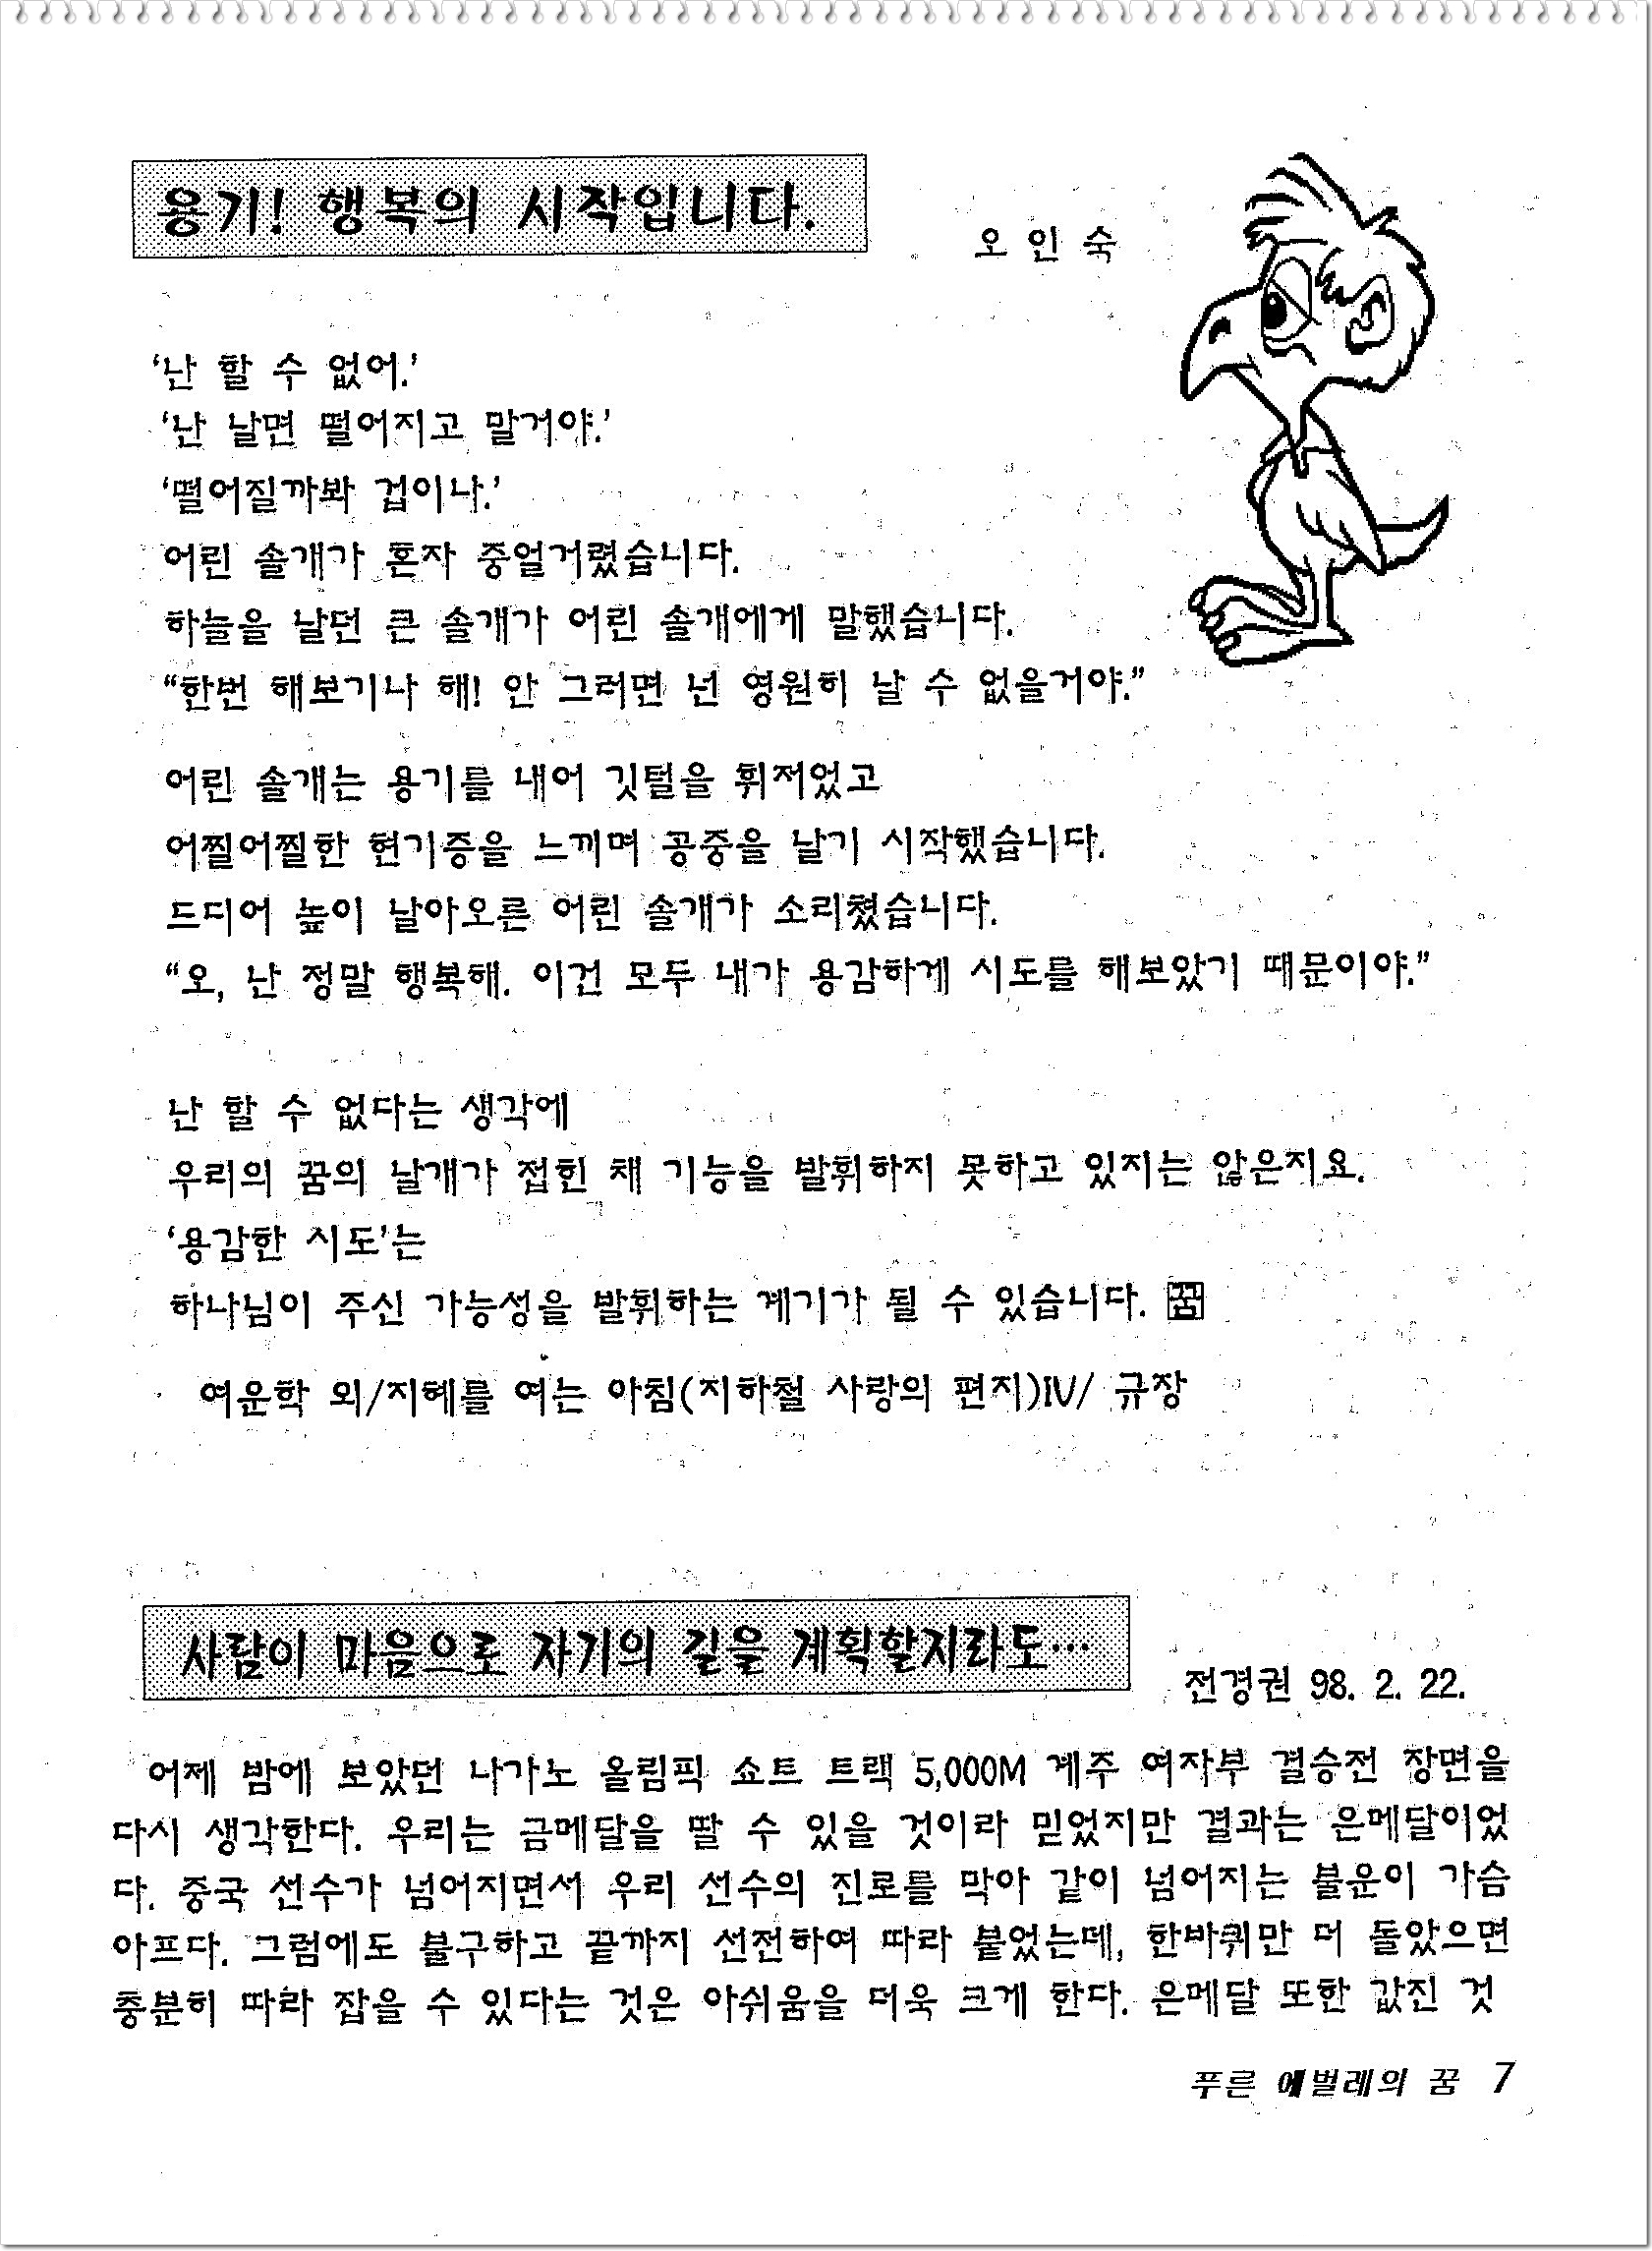 용기! 행복의 시작입니다.
오 인 숙
‘난 할 수 없어.’
‘난 날면 떨어지고 말거야.’
‘떨어질까봐 겁이나.’
어린 솔개가 혼자 중얼거렸습니다.
하늘을 날던 큰 솔개가 어린 솔개에게 말했습니다.
“한번 해보기나 해! 안 그러면 넌 영원히 날 수 없을거야.”
어린 솔개는 용기를 내어 깃털을 휘저었고
어찔어찔한 현기증을 느끼며 공중을 날기 시작했습니다.
드디어 높이 날아오른 어린 솔개가 소리쳤습니다.
“오, 난 정말 행복해. 이건 모두 내가 용감하게 시도를 해보았기 때문이야.”
난 할 수 없다는 생각에
우리의 꿈의 날개가 접힌 채 기능을 발휘하지 못하고 있지는 않은지요.
‘용감한 시도’는
하나님이 주신 가능성을 발휘하는 계기가 될 수 있습니다. 꿈
여운학 외/지혜를 여는 아침(지하철 사랑의 편지)Ⅳ/ 규장
사람이 마음으로 자기의 길을 계획할지라도…
전경권 98. 2. 22.
어제 밤에 보았던 나가노 올림픽 쇼트 트랙 5,000M 계주 여자부 결승전 장면을
다시 생각한다. 우리는 금메달을 딸 수 있을 것이라 믿었지만 결과는 은메달이었
다. 중국 선수가 넘어지면서 우리 선수의 진로를 막아 같이 넘어지는 불운이 가슴
아프다. 그럼에도 불구하고 끝까지 선전하여 따라 붙었는데, 한바퀴만 더 돌았으면
충분히 따라 잡을 수 있다는 것은 아쉬움을 더욱 크게 한다. 은메달 또한 값진 것
푸른 에벌레의 꿈 7